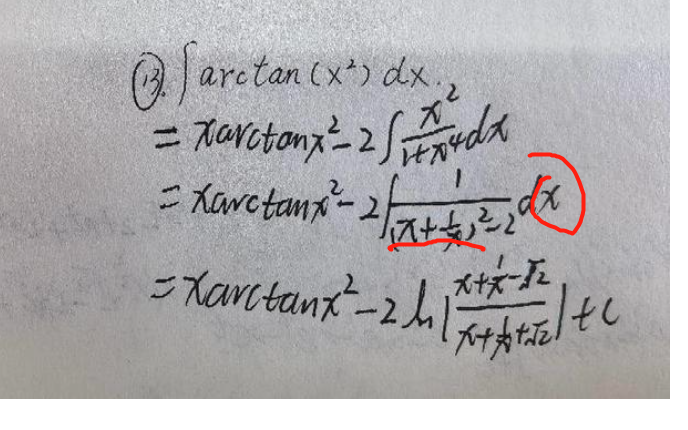 ⑬. ∫ arctan(x²) dx.
= xarctanx² - 2∫ x²/(1+x⁴) dx
= xarctanx² - 2∫ 1/((x+1/x)²-2) dx
= xarctanx² - 2 ln|(x+1/x-√2)/(x+1/x+√2)| + c